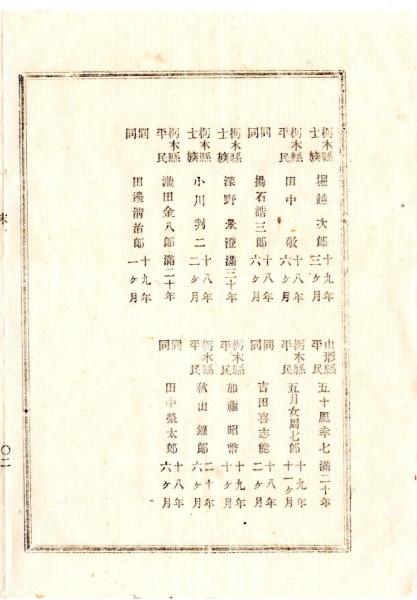 栃木縣士族 堀越次郎 十九年三ケ月
栃木縣平民 田中敬 十八年六ケ月
同同 揚石誥三郎 十八年六ケ月
栃木縣士族 深野景澄 滿三十年
栃木縣士族 小川判二 十八年二ケ月
栃木縣平民 瀧田金八郎 滿二十年
同同 田邊清治郎 十九年一ケ月
山形縣平民 五十嵐幸七 滿二十年
栃木縣平民 五月女周七郎 十八年十一ケ月
同同 吉田喜志能 十八年二ケ月
栃木縣平民 加藤昭幣 十九年十ケ月
栃木縣平民 秋山錄郎 二十年六ケ月
同同 田中榮太郎 十八年六ケ月
末
〇二